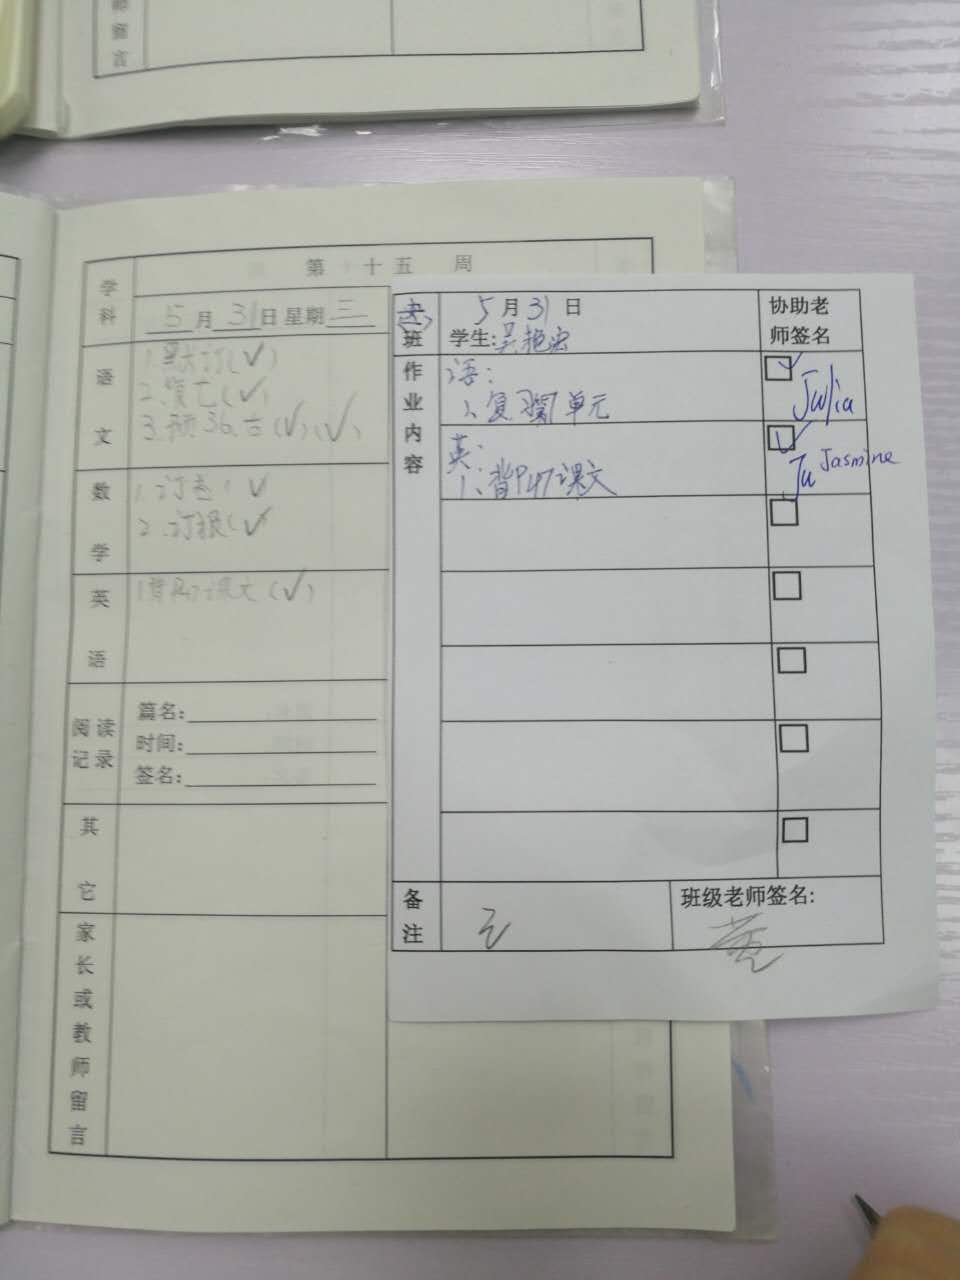 师
留
言
第 十 五 周
学
科
5月31日 星期三
语
文
1.默订(✓)
2.
3.预36.古(✓)(✓)
数
学
2.订报(✓
英
语
课文(✓)
阅 读
记 录
篇名:
时间:
签名:
其
它
家
长
或
教
师
留
言
班
5月31日
学生:吴
协助老
师签名
作
业
内
容
语:
1、复习第7单元
Julia
英:
1、背P47课文
Ju Jasmine
备
注
无
班级老师签名: